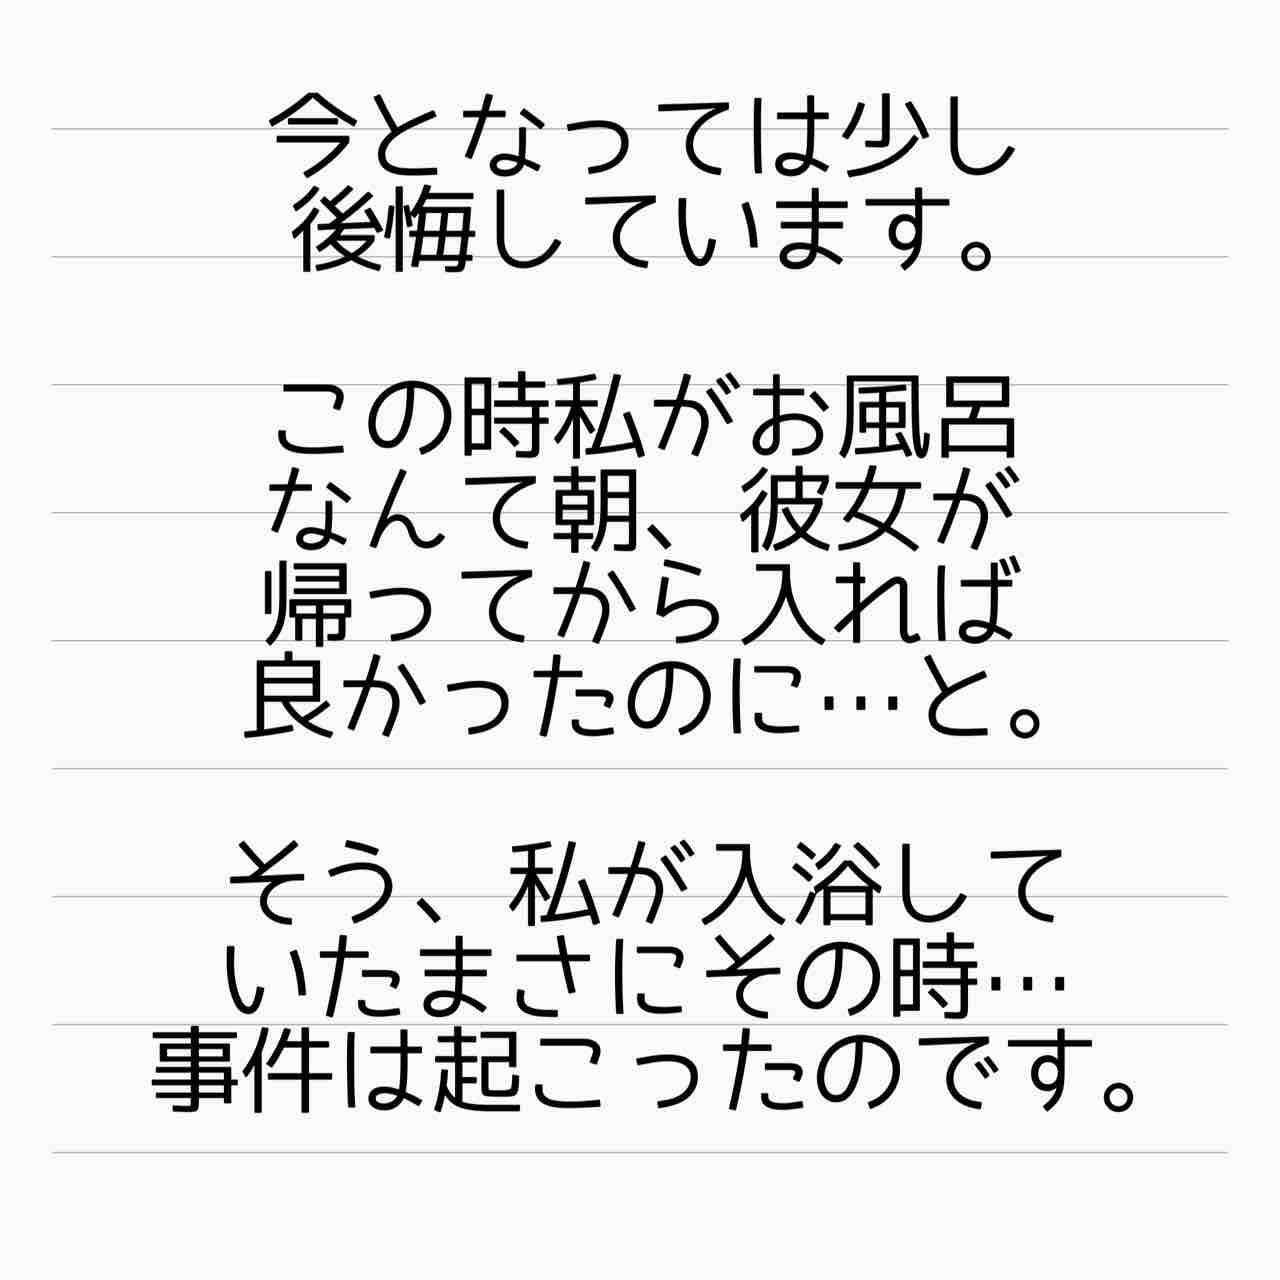 今となっては少し
後悔しています。
この時私がお風呂
なんて朝、彼女が
帰ってから入れば
良かったのに…と。
そう、私が入浴して
いたまさにその時…
事件は起こったのです。